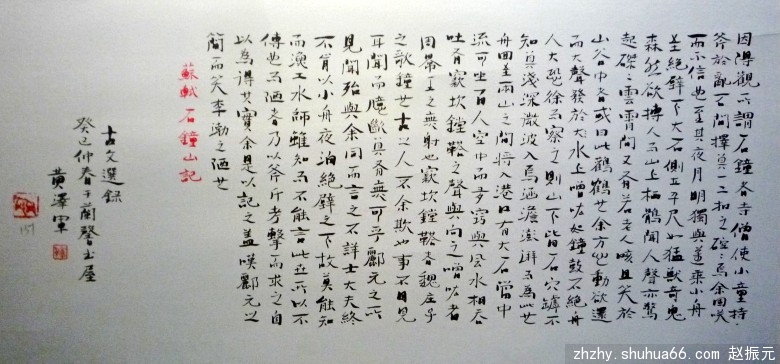 因得觀所謂石鐘者寺僧使小童持
斧於亂石間擇其一二扣之硿硿焉余固笑
而不信也至其夜月明獨與邁乘小舟
至絕壁下大石側立千尺如猛獸奇鬼
森然欲搏人而山上栖鶻聞人聲亦驚
起磔磔雲霄間又有若老人咳且笑於
山谷中者或曰此鸛鶴也余方心動欲還
而大聲發於水上噌吰如鐘鼓不絕舟
人大恐徐而察之則山下皆石穴罅不
知其淺深微波入焉涵澹澎湃而為此也
舟回至兩山之間將入港口有大石當中
流可坐百人空中而多竅與風水相吞
吐有窾坎鏜鞳之聲與向之噌吰者
周景王之無射也窾坎鏜鞳者魏莊子
之歌鐘也古之人不余欺也事不目見
耳聞而臆斷其有無可乎酈元之所
見聞殆與余同而言之不詳士大夫終
不肯以小舟夜泊絕壁之下故莫能知
而漁工水師雖知而不能言此世所以不
傳也而陋者乃以斧斤考擊而求之自
以為得其實余是以記之蓋嘆酈元之
簡而笑李渤之陋也
蘇軾 石鐘山記
古文選錄
癸巳仲春于蘭馨書屋
黃澤軍
151
zhzhy.shuhua66.com 赵振元